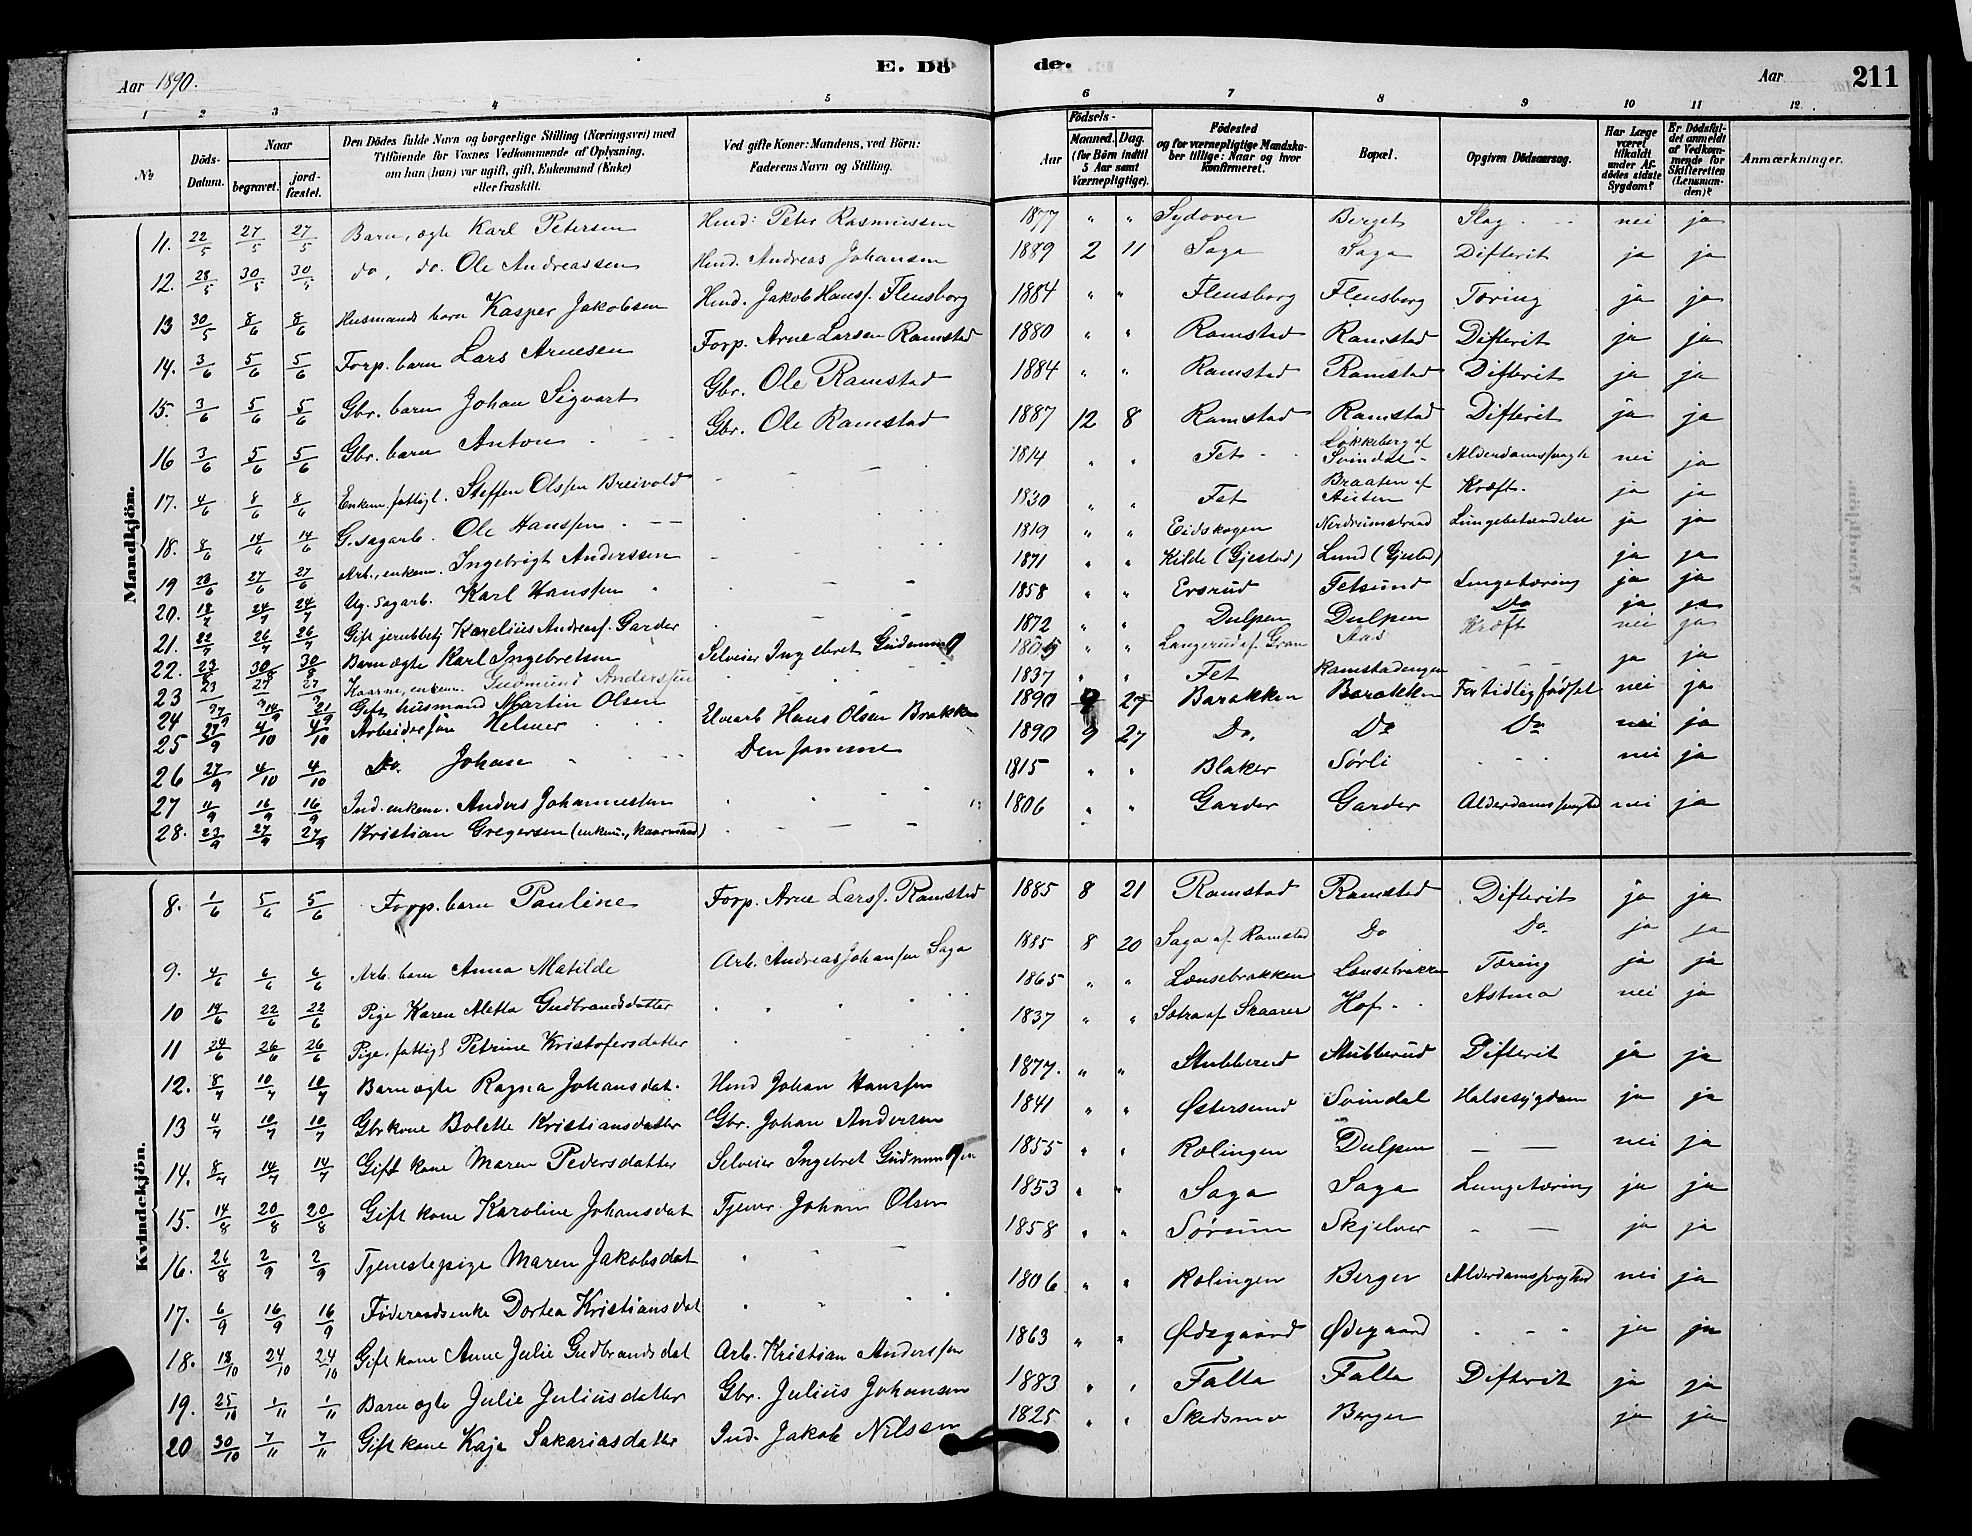 Aar 1890. E. Dö de. Aar 211
1 2 3 4 5 6 7 8 9 10 11 12.
No
Döds-Datum.
Naar begravet. jordfæstet.
Den Dödes fulde Navn og borgerlige Stilling (Næringsvei) med Tilföiende for Voxnes Vedkommende af Oplysning, om han (hun) var ugift, gift, Enkemand (Enke) eller fraskilt.
Ved gifte Koner: Mandens, ved Börn: Faderens Navn og Stilling.
Födsels-
Aar Maaned. Dag. (for Börn indtil 5 Aar samt Værnepligtige).
Födested og for værnepligtige Mandskaber tillige: Naar og hvor konfirmeret.
Bopæl.
Opgiven Dödsaarsag.
Har Læge været tilkaldt under Afdödes sidste Sygdom?
Er Dödsfaldet anmeldt af Vedkommende for Skifteretten (Lensmanden)?
Anmærkninger.
Mandkjön.
11. 22/5 27/5 27/5 Barn, ægte Karl Petersen Husd: Peter Rasmussen 1877 " " Sydover Berget Slag nei ja
12. 28/5 30/5 30/5 do, do. Ole Andreassen Husd. Andreas Johansen 1889 2 11 Saga Saga Difterit ja ja
13 30/5 8/6 8/6 Husmands barn Kasper Jakobsen Husd. Jakob Hansf. Flensborg 1884 " " Flensborg Flensborg Tæring ja ja
14. 3/6 5/6 5/6 Forp. barn Lars Arnesen Forp. Arne Larsen Ramstad 1880 " " Ramstad Ramstad Difterit ja ja
15. 3/6 5/6 5/6 Gbr. barn Johan Sigvart Gbr. Ole Ramstad 1884 " " Ramstad Ramstad Difterit ja ja
16 3/6 5/6 5/6 Gbr. barn Anton Gbr. Ole Ramstad 1887 12 8 Ramstad Ramstad Difterit ja ja
17. 4/6 8/6 8/6 Enkem. fattigl. Steffen Olssen Breivold 1814 " " Fet Løkkeberg af Svindal Alderdomssvagh nei ja
18. 8/6 14/6 14/6 G. sagarb. Ole Hanssen 1830 " " Fet Braaten af Austen Kræft ja ja
19 23/6 27/6 27/6 Arb., enkem. Ingebrigt Anderssen 1819 " " Eidskogen Nerdrumstrand Lungebetændelse ja ja
20. 18/7 24/7 24/7 Ug. sagarb. Karl Hanssen 1871 " " Kilde (Gjestad) Lund (Gjestad) ja ja
21. 22/7 26/7 26/7 Gift Karelius Andreasf. Garder 1858 " " Ersrud Fetsund Lungetæring ja ja
22. 23/8 30/8 30/8 Barn ægte Karl Ingebretsen Selveier Ingebret Gudmund 1872 " " Dulpen Dulpen Do ja ja
23 23 27 27 Kaarm, enkem. Gudmund Anderssen 1805 " " Langerud af. Gran Aas Kræft nei ja
24 14/9 21/9 Gift husmand Martin Olsen 1837 " " Fet Ramstadengen ja ja
25 27/9 4/10 4/10 Arbeidersøn Helmer Hans Olsen Brakken 1890 9 27 Barakken Barakken Fortidligfødsel nei ja
26 27/9 4/10 4/10 Do. Johan Den samme 1890 9 27 Do. Do Do nei ja
27 4/9 16/9 16/9 Ind. enkem. Anders Johannessen 1815 " " Blaker Sørli nei ja
28. 23/9 27/9 27/9 Kristian Gregersen (enkem, kaarmand) 1806 " " Garder Garder Alderdomssvaghed nei ja
Kvindekjön.
8. 1/6 5/6 5/6 Forp. barn Pauline Forp. Arne Larsf. Ramstad 1885 8 21 Ramstad Ramstad Difterit ja ja
9. 4/6 6/6 6/6 Arb. barn Anna Matilde Arb. Andreas Johansen Saga 1885 8 20 Saga af Ramstad Do Do ja ja
10 14/6 22/6 22/6 Pige Karen Aletta Gudbrandsdatter 1865 " " Lænsebrakken Lænsebrakken Tæring ja ja
11 24/6 26/6 26/6 Pige, fattigl Petrine Kristofersdatter 1837 " " Sætra af Skaarer Hof Astma nei ja
12. 8/7 10/7 10/7 Barn ægte Ragna Johansdat. Husd Johan Hanssen 1877. " " Stubberud Stubberud Difterit ja ja
13 4/7 10/7 10/7 Gbrkone Bolette Kristiansdatter Gbr. Johan Andersen 1841 " " Østersund Svindal Halsesygdom ja ja
14. 8/7 14/7 14/7 Gift kone Maren Pedersdatter Selveier Ingebret Gudmundsen 1855 " " Rolingen Dulpen nei ja
15. 14/8 20/8 20/8 Gift kone Karoline Johansdat Tjener Johan Olsen 1853 " " Saga Saga Lungetæring ja ja
16. 26/8 2/9 2/9 Tjenestepige Maren Jakobsdat 1858 " " Sørum Skjelver ja ja
17. 6/9 16/9 16/9 Føderaadsenke Dortea Kristiansdat 1806 " " Rolingen Berger Alderdomssvaghed nei ja
18. 18/10 24/10 24/10 Gift kone Anne Julie Gudbrandsdat Arb. Kristian Anderssen 1863 " " Ødegaard Ødegaard ja ja
19. 25/10 1/11 1/11 Barn ægte Julie Juliusdatter Gbr. Julius Johansen 1883 " " Falla Falla Difterit ja ja
20 30/10 7/11 7/11 Gift kone Kaja Sakariasdatter Ind. Jakob Nilssen 1825 " " Skedsmo Berger ja ja